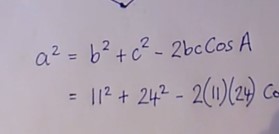 a² = b² + c² - 2bcCosA
= 11² + 24² - 2(11)(24) Co